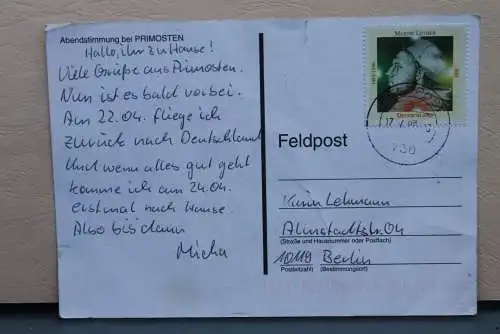 Abendstimmung bei PRIMOSTEN
Hallo, ihr zu Hause!
Viele Grüße aus Primosten.
Nun ist es bald vorbei.
Am 22.04. fliege ich
zurück nach Deutschland
Und wenn alles gut geht
komme ich am 24.04.
erstmal nach Hause.
Also bis dann
Micha
Martin Luther
Deutschland
Feldpost
Karin Lehmann
Almstadtstr. 04
(Straße und Hausnummer oder Postfach)
10119 Berlin
(Postleitzahl) (Bestimmungsort)